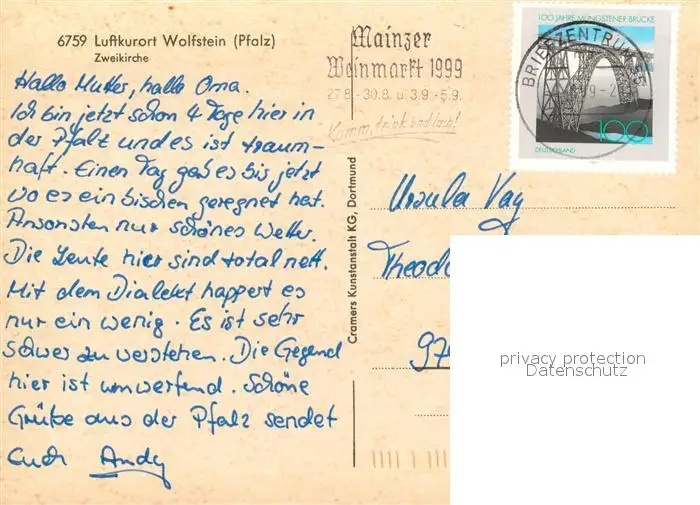 6759 Luftkurort Wolfstein (Pfalz)
Zweikirche
Hallo Mutter, hallo Oma.
Ich bin jetzt schon 4 Tage hier in
der Pfalz und es ist traum-
haft. Einen Tag gab es bis jetzt
wo es ein bischen geregnet hat.
Ansonsten nur schönes Wetter.
Die Leute hier sind total nett.
Mit dem Dialekt happert es
nur ein wenig. Es ist sehr
schwer zu verstehen. Die Gegend
hier ist umwerfend. Schöne
Grüße aus der Pfalz sendet
Euch Andy
Cramers Kunstanstalt KG, Dortmund
Mainzer
Weinmarkt 1999
27.8.-30.8. u. 3.9.-5.9.
Komm, trink und lach!
BRIEFZENTRUM
100 JAHRE MÜNGSTENER BRÜCKE
100
DEUTSCHLAND
Ursula Vay
Theodo
97
privacy protection
Datenschutz